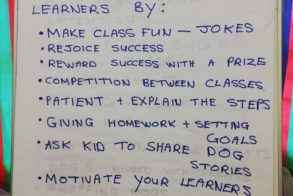 LEARNERS BY:
• MAKE CLASS FUN — JOKES
• REJOICE SUCCESS
• REWARD SUCCESS WITH A PRIZE
• COMPETITION BETWEEN CLASSES
• PATIENT + EXPLAIN THE STEPS
• GIVING HOMEWORK + SETTING
GOALS
• ASK KID TO SHARE DOG
STORIES
• MOTIVATE YOUR LEARNERS